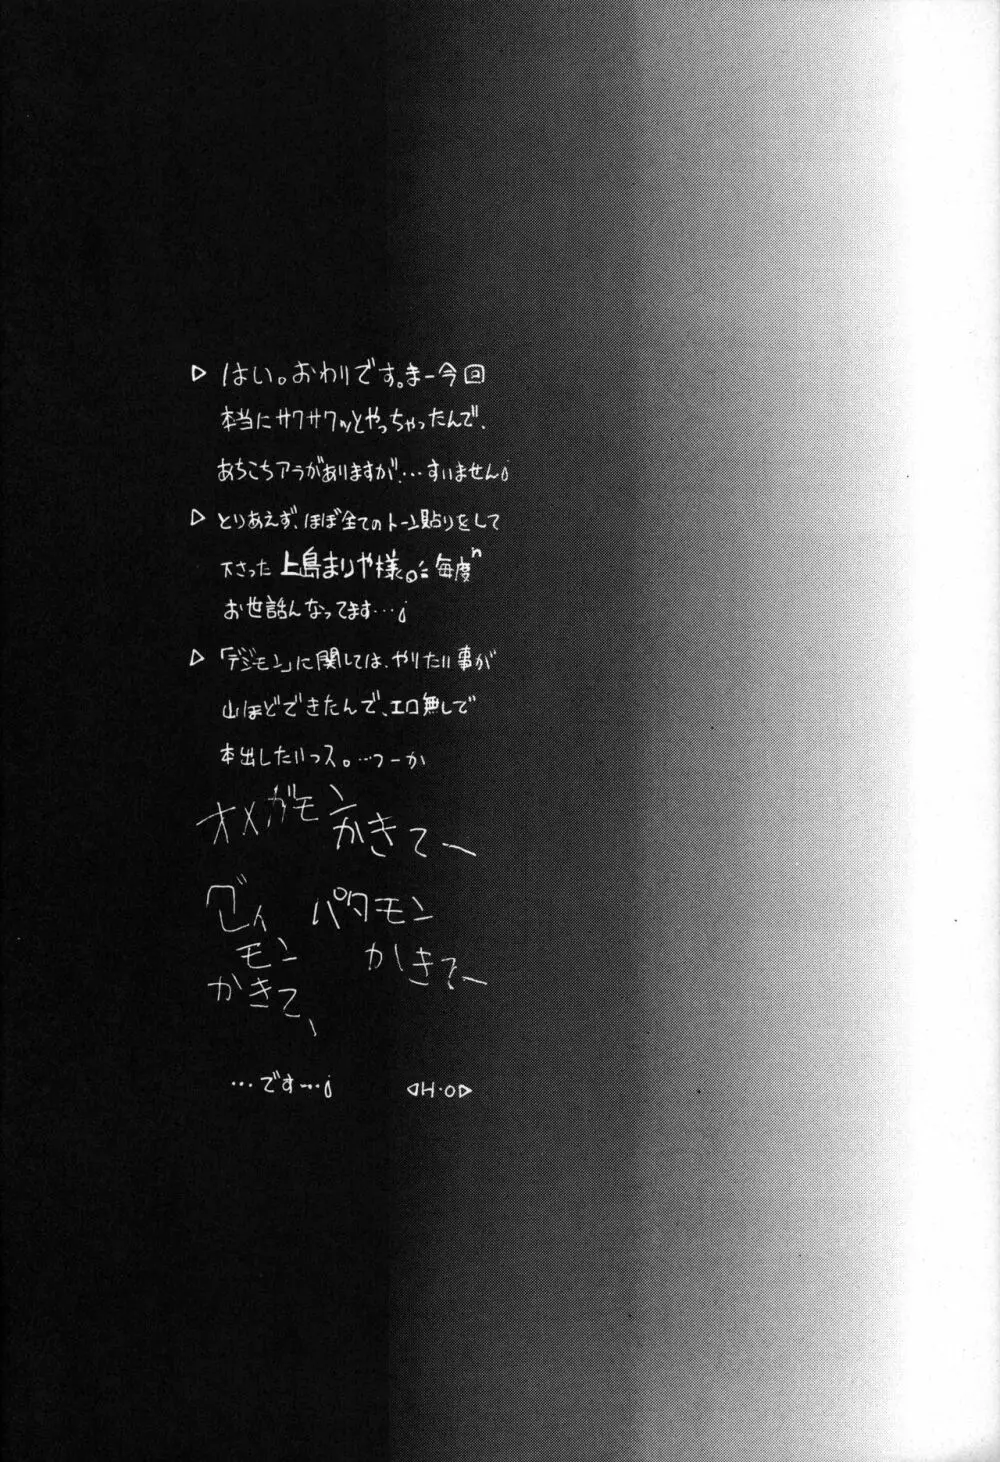 ▷ はい。おわりです。まー今回
本当にサクサクッとやっちゃったんで、
あちこちアラがありますが、…すいません
▷ とりあえず、ほぼ全てのトーン貼りをして
下さった 上島まりや様。毎度
お世話んなってます…
▷ 「デジモン」に関しては、やりたい事が
山ほどできたんで、エロ無しで
本出したいっス。…つーか
オメガモン
かきてー
パタモン
かきてー
モン
かきて、
…です…
◁H・O▷